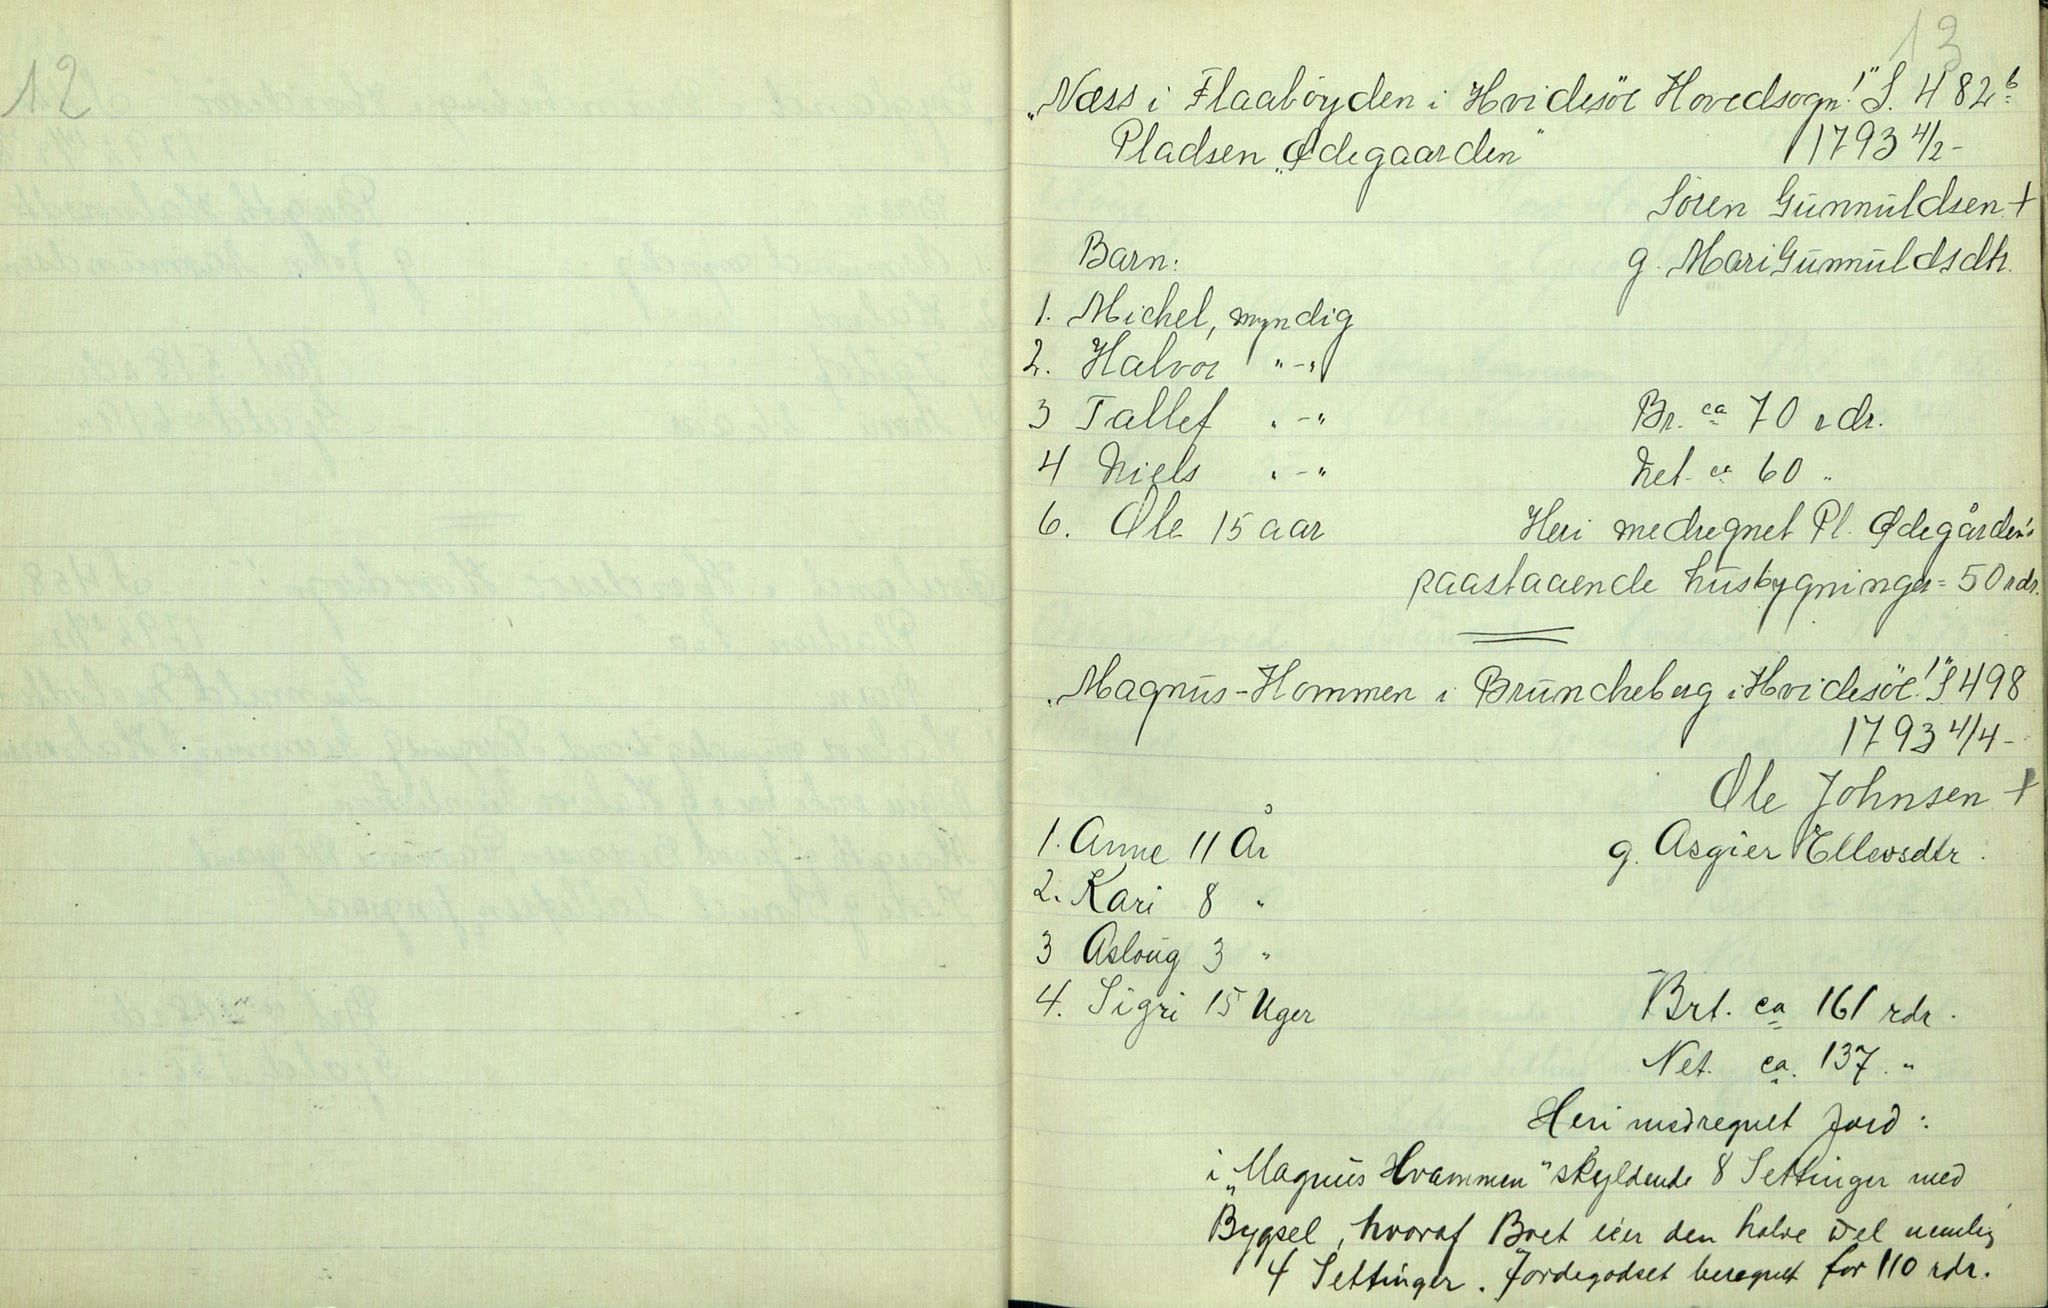 12
13
„Næss i Flaabøyden i Hvidesöe Hovedsogn!" S. 482b
Pladsen „Ødegaarden" 1793 4/2-
Sören Gunnuldsen +
Barn: g. Mari Gunnuldsdtr.
1. Michel, myndig
2. Halvor "-"
3 Tallef "-" Br. ca 70 rdr.
4 Niels "-" Net. ca 60 "
6. Ole 15 aar Heri medregnet Pl. Ødegården's
paastaaende husbygninger = 50 rdr.
„Magnus-Hommen i Bruncheberg i Hvidesöe!" S 498
1793 4/4-
Ole Johnsen +
1. Anne 11 År g. Asgier Ellevsdtr.
2. Kari 8 "
3 Asloug 3 "
4. Sigri 15 Uger Brt. ca 161 rdr.
Net. ca. 137. "
Heri medregnet Jord:
i „Magnus Hvammen" skyldende 8 Settinger med
Bygsel, hvoraf Boet eier den halve Del nemlig
4 Settinger. Jordegodset beregnet for 110 rdr.